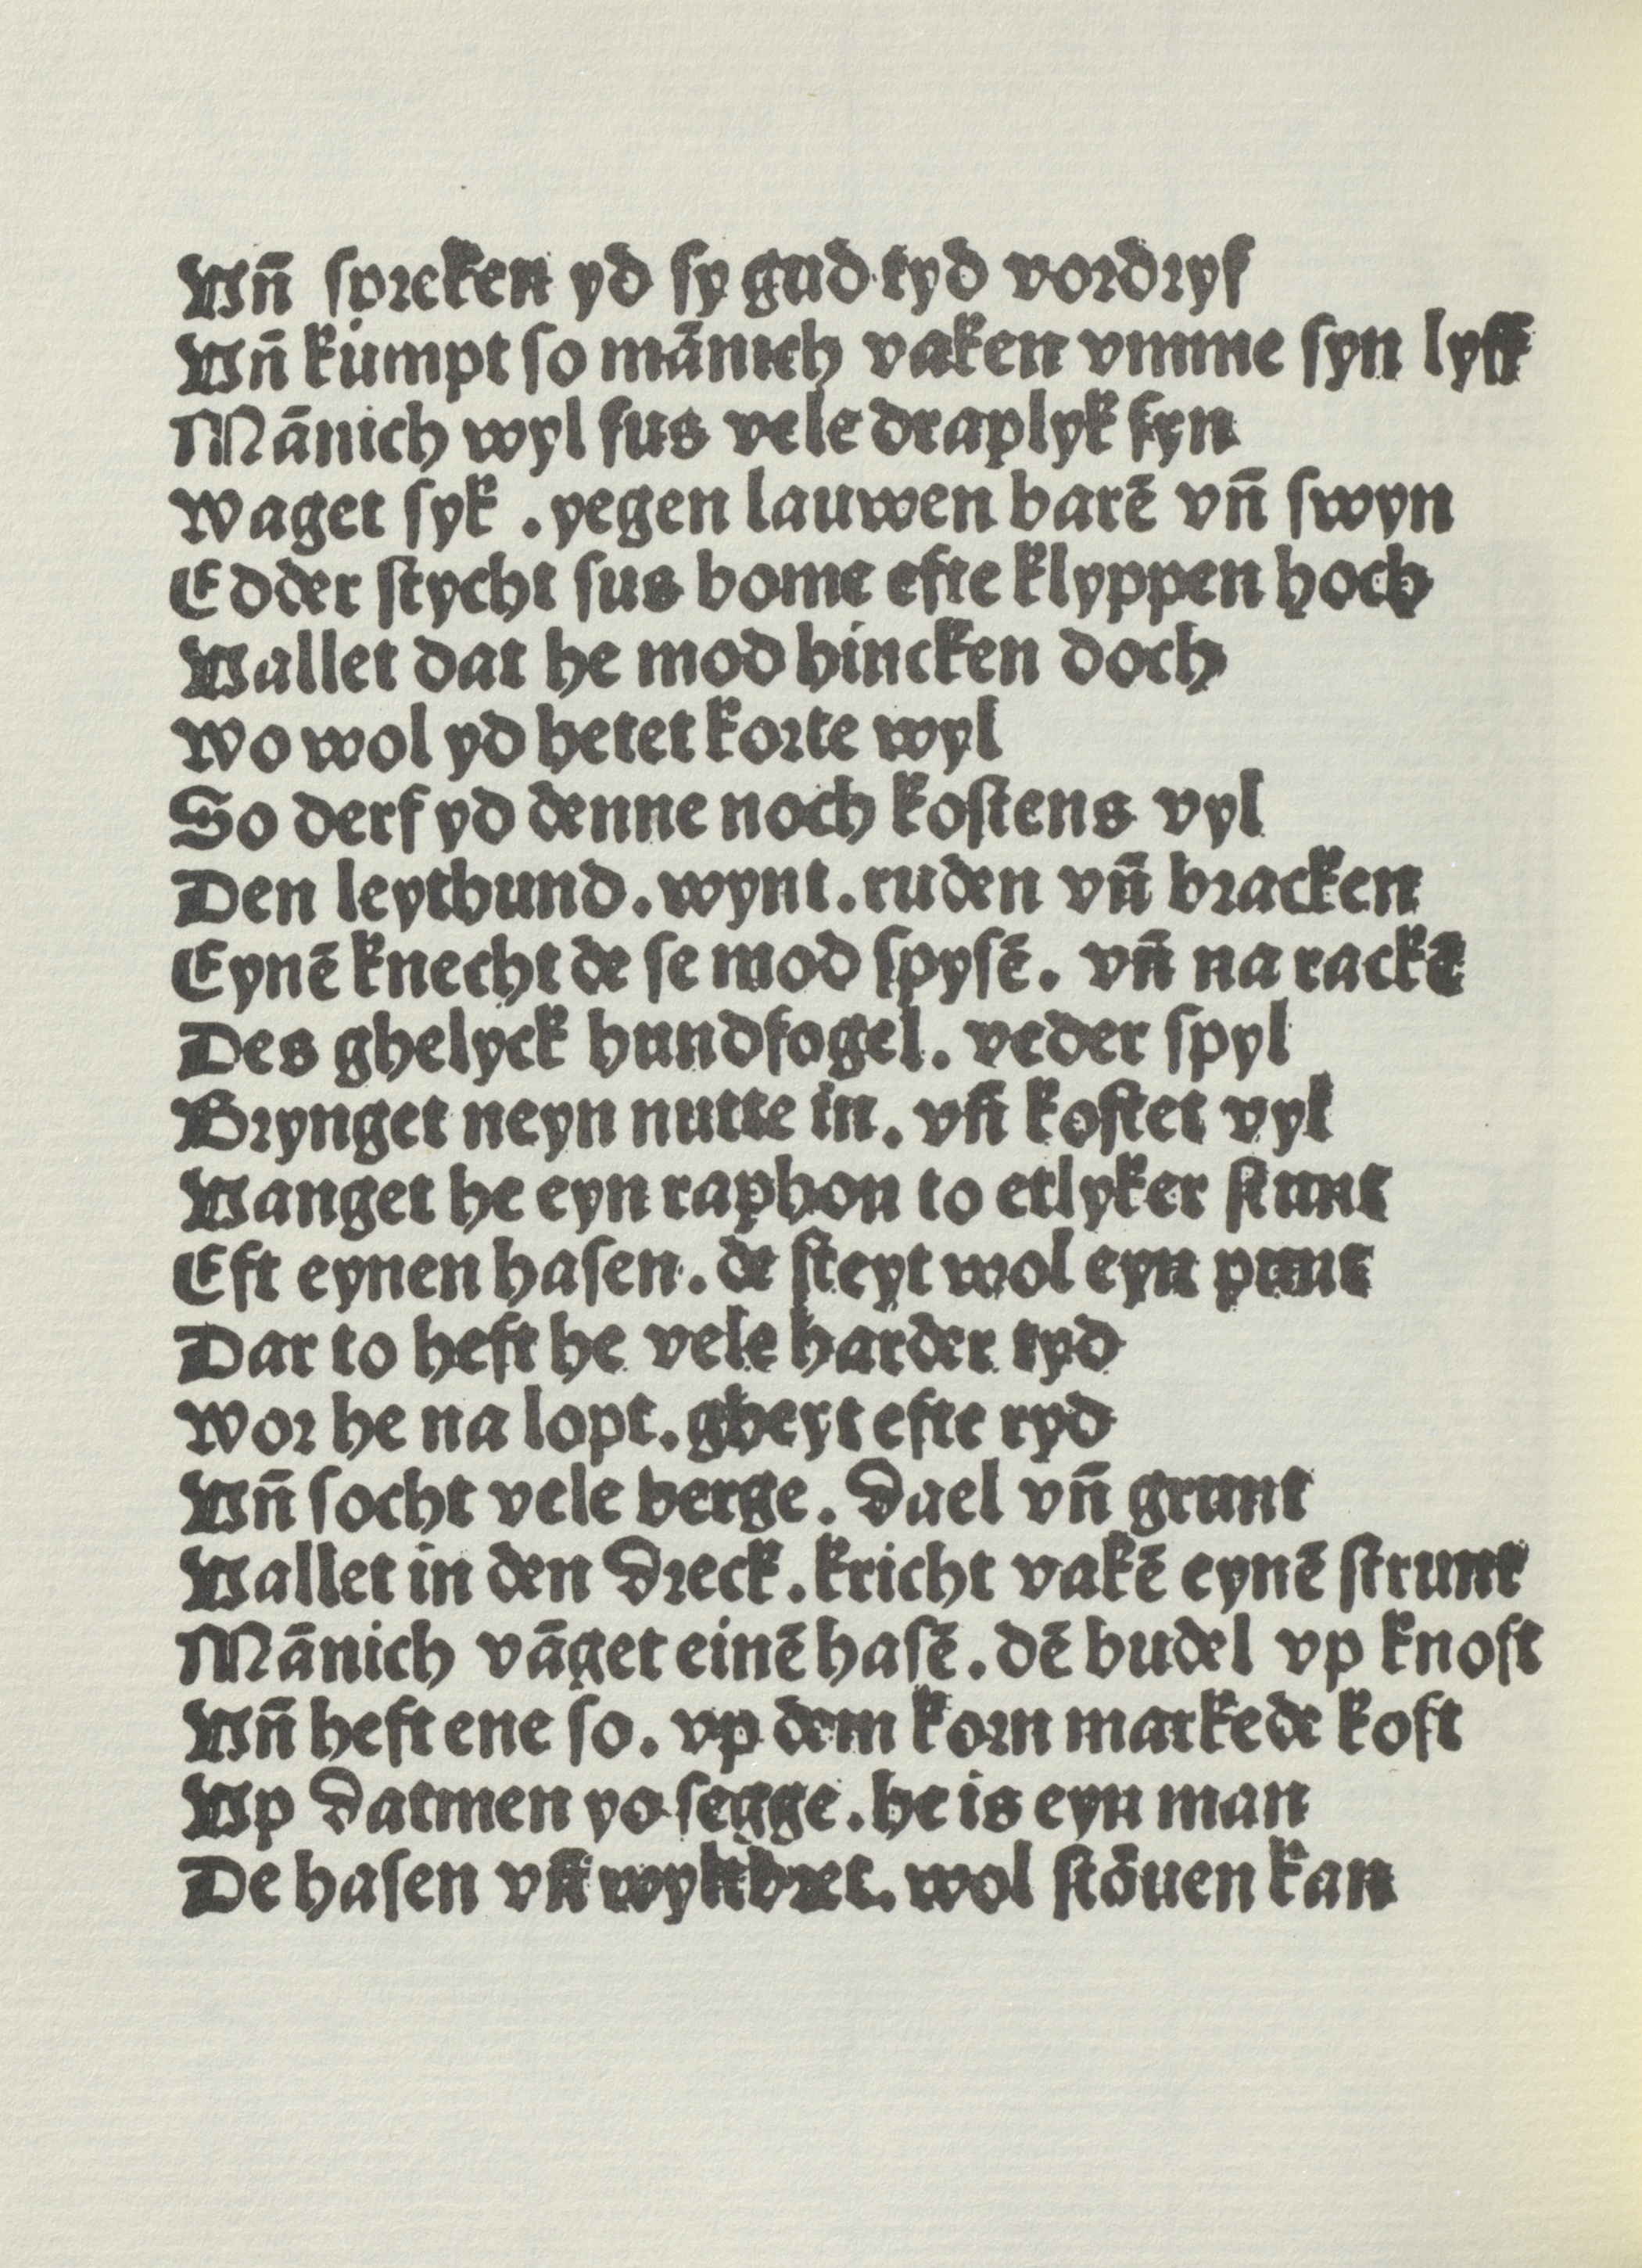 Vñ spreken yd sy gud tyd vordryf
Vñ kumpt so mānich vaken vmme syn lyff
Mānich wyl sus vele draplyk syn
Waget syk . yegen lauwen barē vñ swyn
Edder stycht sus bome efte klyppen hoch
Vallet dat he mod hincken doch
Wo wol yd hetet korte wyl
So derf yd denne noch kostens vyl
Den leythund . wynt . ruden vñ bracken
Eynē knecht de se mod spysē . vñ na rackē
Des ghelyck hundfogel . veder spyl
Brynget neyn nutte in . vñ kostet vyl
Vanget he eyn raphon to etlyker stunt
Eft eynen hasen . de steyt wol eyn punt
Dar to heft he vele harder tyd
Wor he na lopt . gheyt efte ryd
Vñ socht vele berge . dael vñ grunt
Vallet in den dreck . kricht vakē eynē strunt
Mānich vāget einē hasē . dē budel vp knoft
Vñ heft ene so . vp dem korn markede koft
Vp datmen yo segge . he is eyn man
De hasen vñ wyltbret . wol stōuen kan